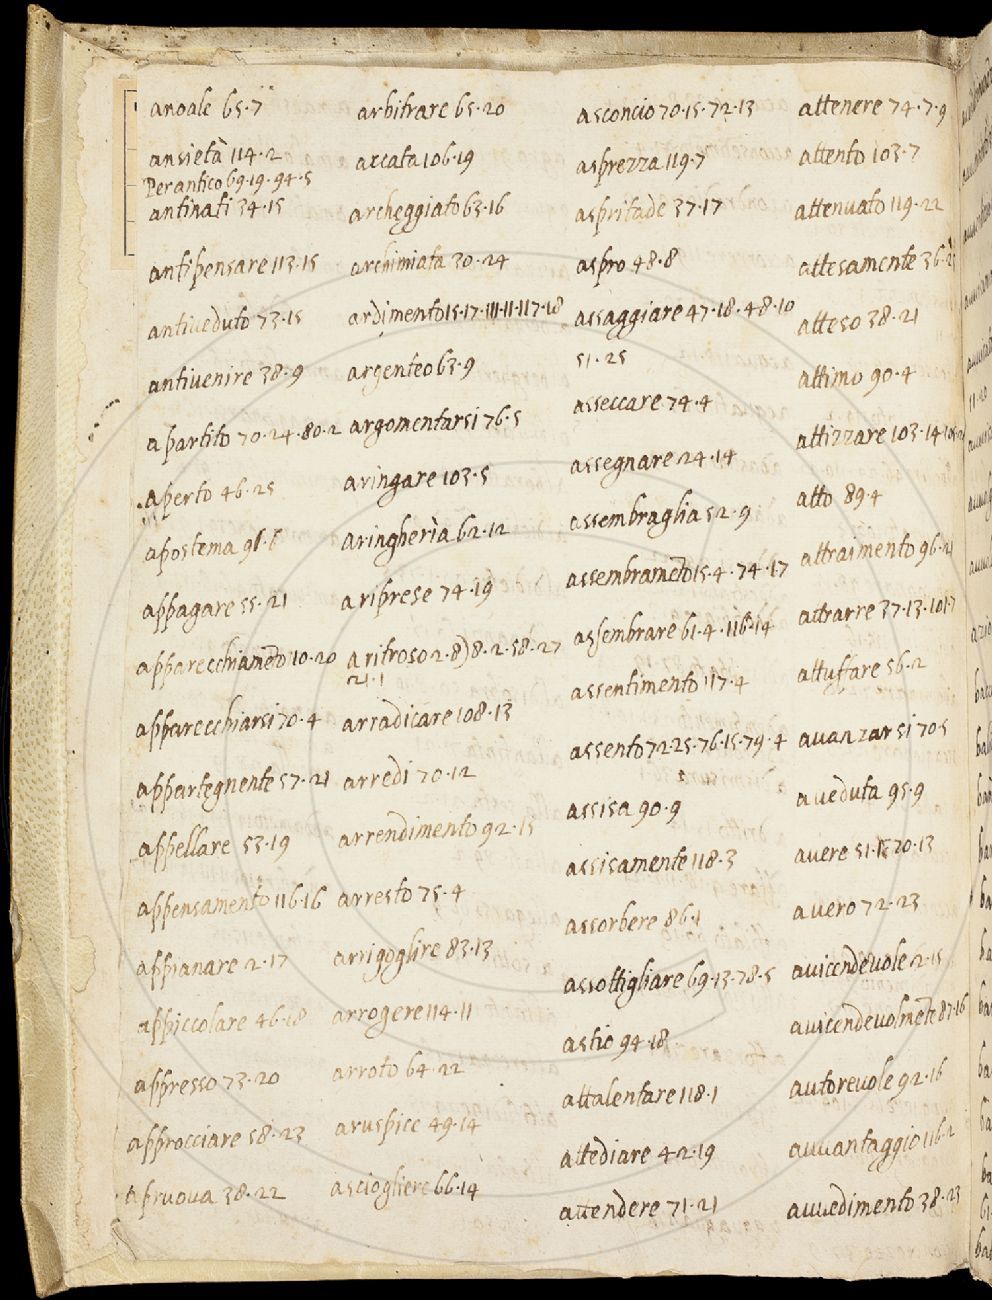 anoale 65·7
ansietà 114·2
Per antico 69·19·94·5
antinati 34·15
antipensare 113·15
antiueduto 73·15
antiuenire 38·9
a partito 70·24·80·2
aperto 46·25
apostema
appagare 55·21
apparecchiameto 10·20
apparecchiarsi 70·4
appartegnente 57·21
appellare 53·19
appensamento 116·16
appianare 2·17
appiccolare 46·18
appresso 73·20
approcciare 58·23
a pruoua 38·22
arbitrare 65·20
arcata 106·19
archeggiato 63·16
archimiata 30·24
ardimento 15·17·111·11·117·18
argenteo 63·9
argomentarsi 76·5
aringare 103·5
aringheria 62·12
a riprese 74·19
a ritroso 2·8)8·2·58·27
21·1
arradicare 108·13
arredi 70·12
arrendimento 92·15
arresto 75·4
arrigoglire 83·13
arrogere 114·11
arroto 64·22
aruspice 49·14
asciogliere 66·14
asconcio 70·15·72·13
asprezza 119·7
aspritade 37·17
aspro 48·8
assaggiare 47·18·48·10
51·25
asseccare 74·4
assegnare 24·14
assembraglia 52·9
assembrameto 15·4·74·17
assembrare 61·4·116·14
assentimento 117·4
assento 72·25·76·15·79·4
assisa 90·9
assisamente 118·3
assorbere 86·1
assottigliare 69·13·78·5
astio 94·18
attalentare 118·1
attediare 42·19
attendere 71·21
attenere 74·7·9
attento 103·7
attenuato 119·22
attesamente
atteso 38·21
attimo 90·4
attizzare 103·14
atto 89·4
attraimento 96·21
attrarre 37·13·101·7
attuffare 56·2
auanzarsi 70·5
aueduta 95·9
auere
auero 72·23
auicendeuole 2·15
auicendeuolmete 87·16
autoreuole 92·16
auuantaggio 116·2
auuedimento 38·23